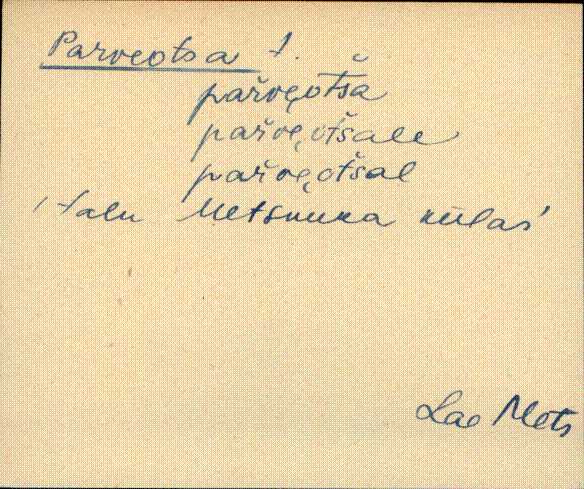 Parveotsa t.
pař̌ve̬otša
pařve̬otšale
pařve̬otšal
talu Metsnuka külas
Lao Mets